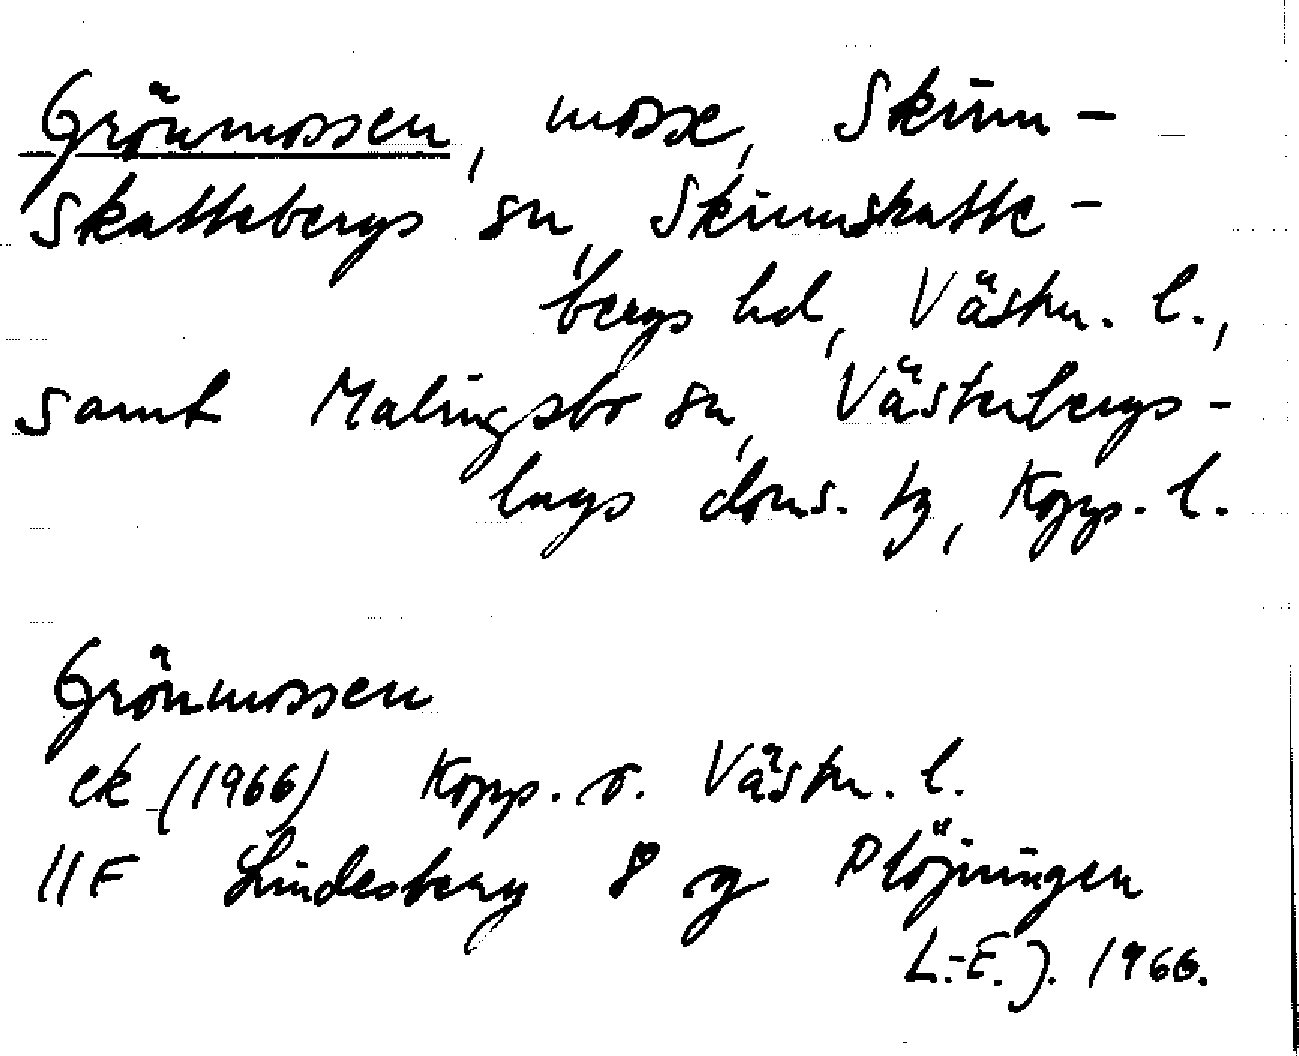 Grönmossen, mosse, Skinn-
Skattebergs sn, Skinnskatte-
bergs hd, Västm. l.,
samt Malingsbo sn, Västerbergs-
lags doms. tg, Kopp. l.
Grönmossen
ek (1966) Kopp. o. Västm. l.
11F Lindesberg 8 g Plöjningen
L.-E. J. 1966.